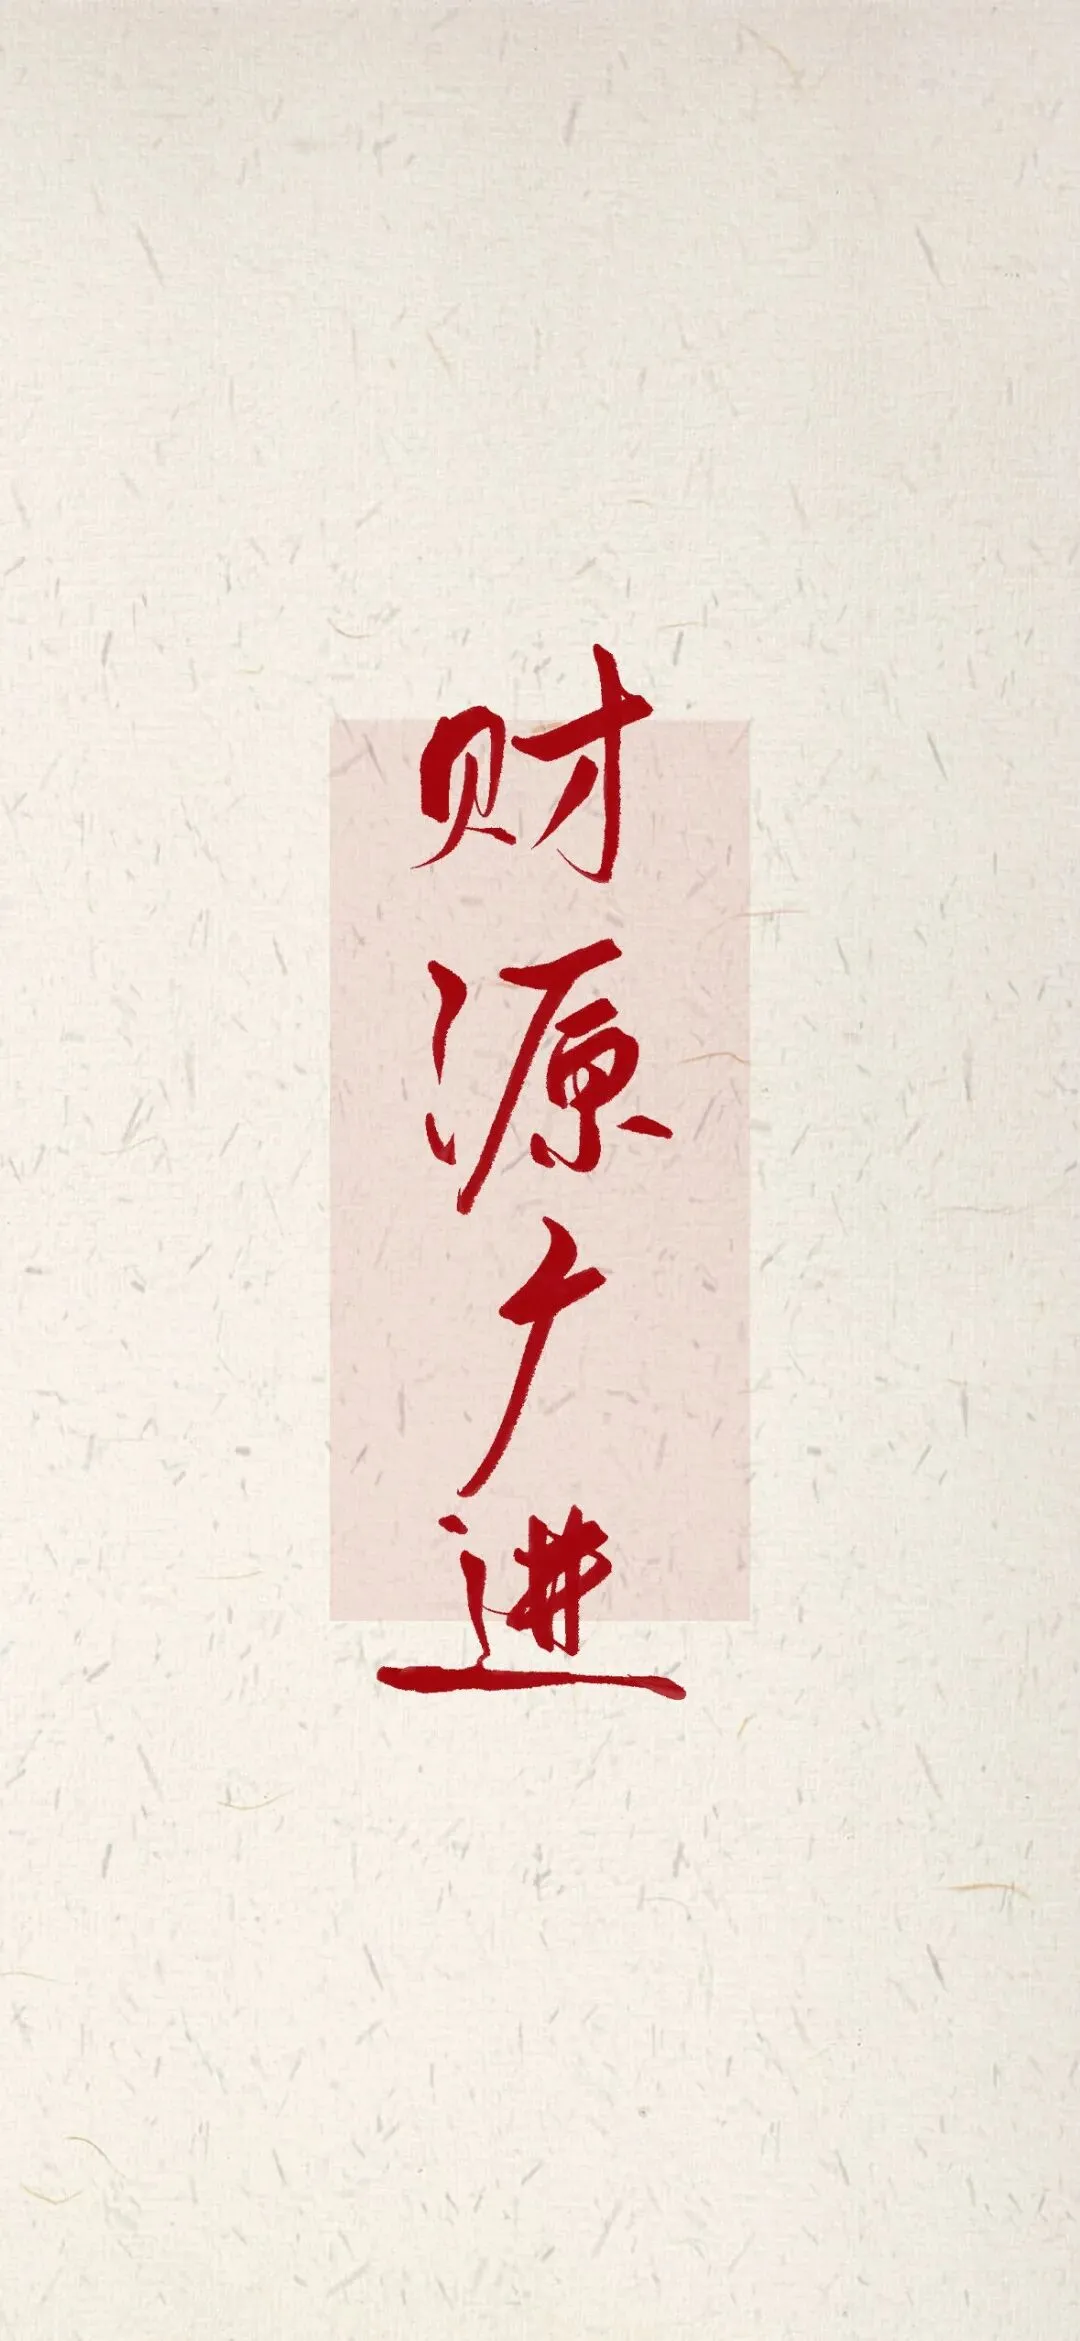 财源广进